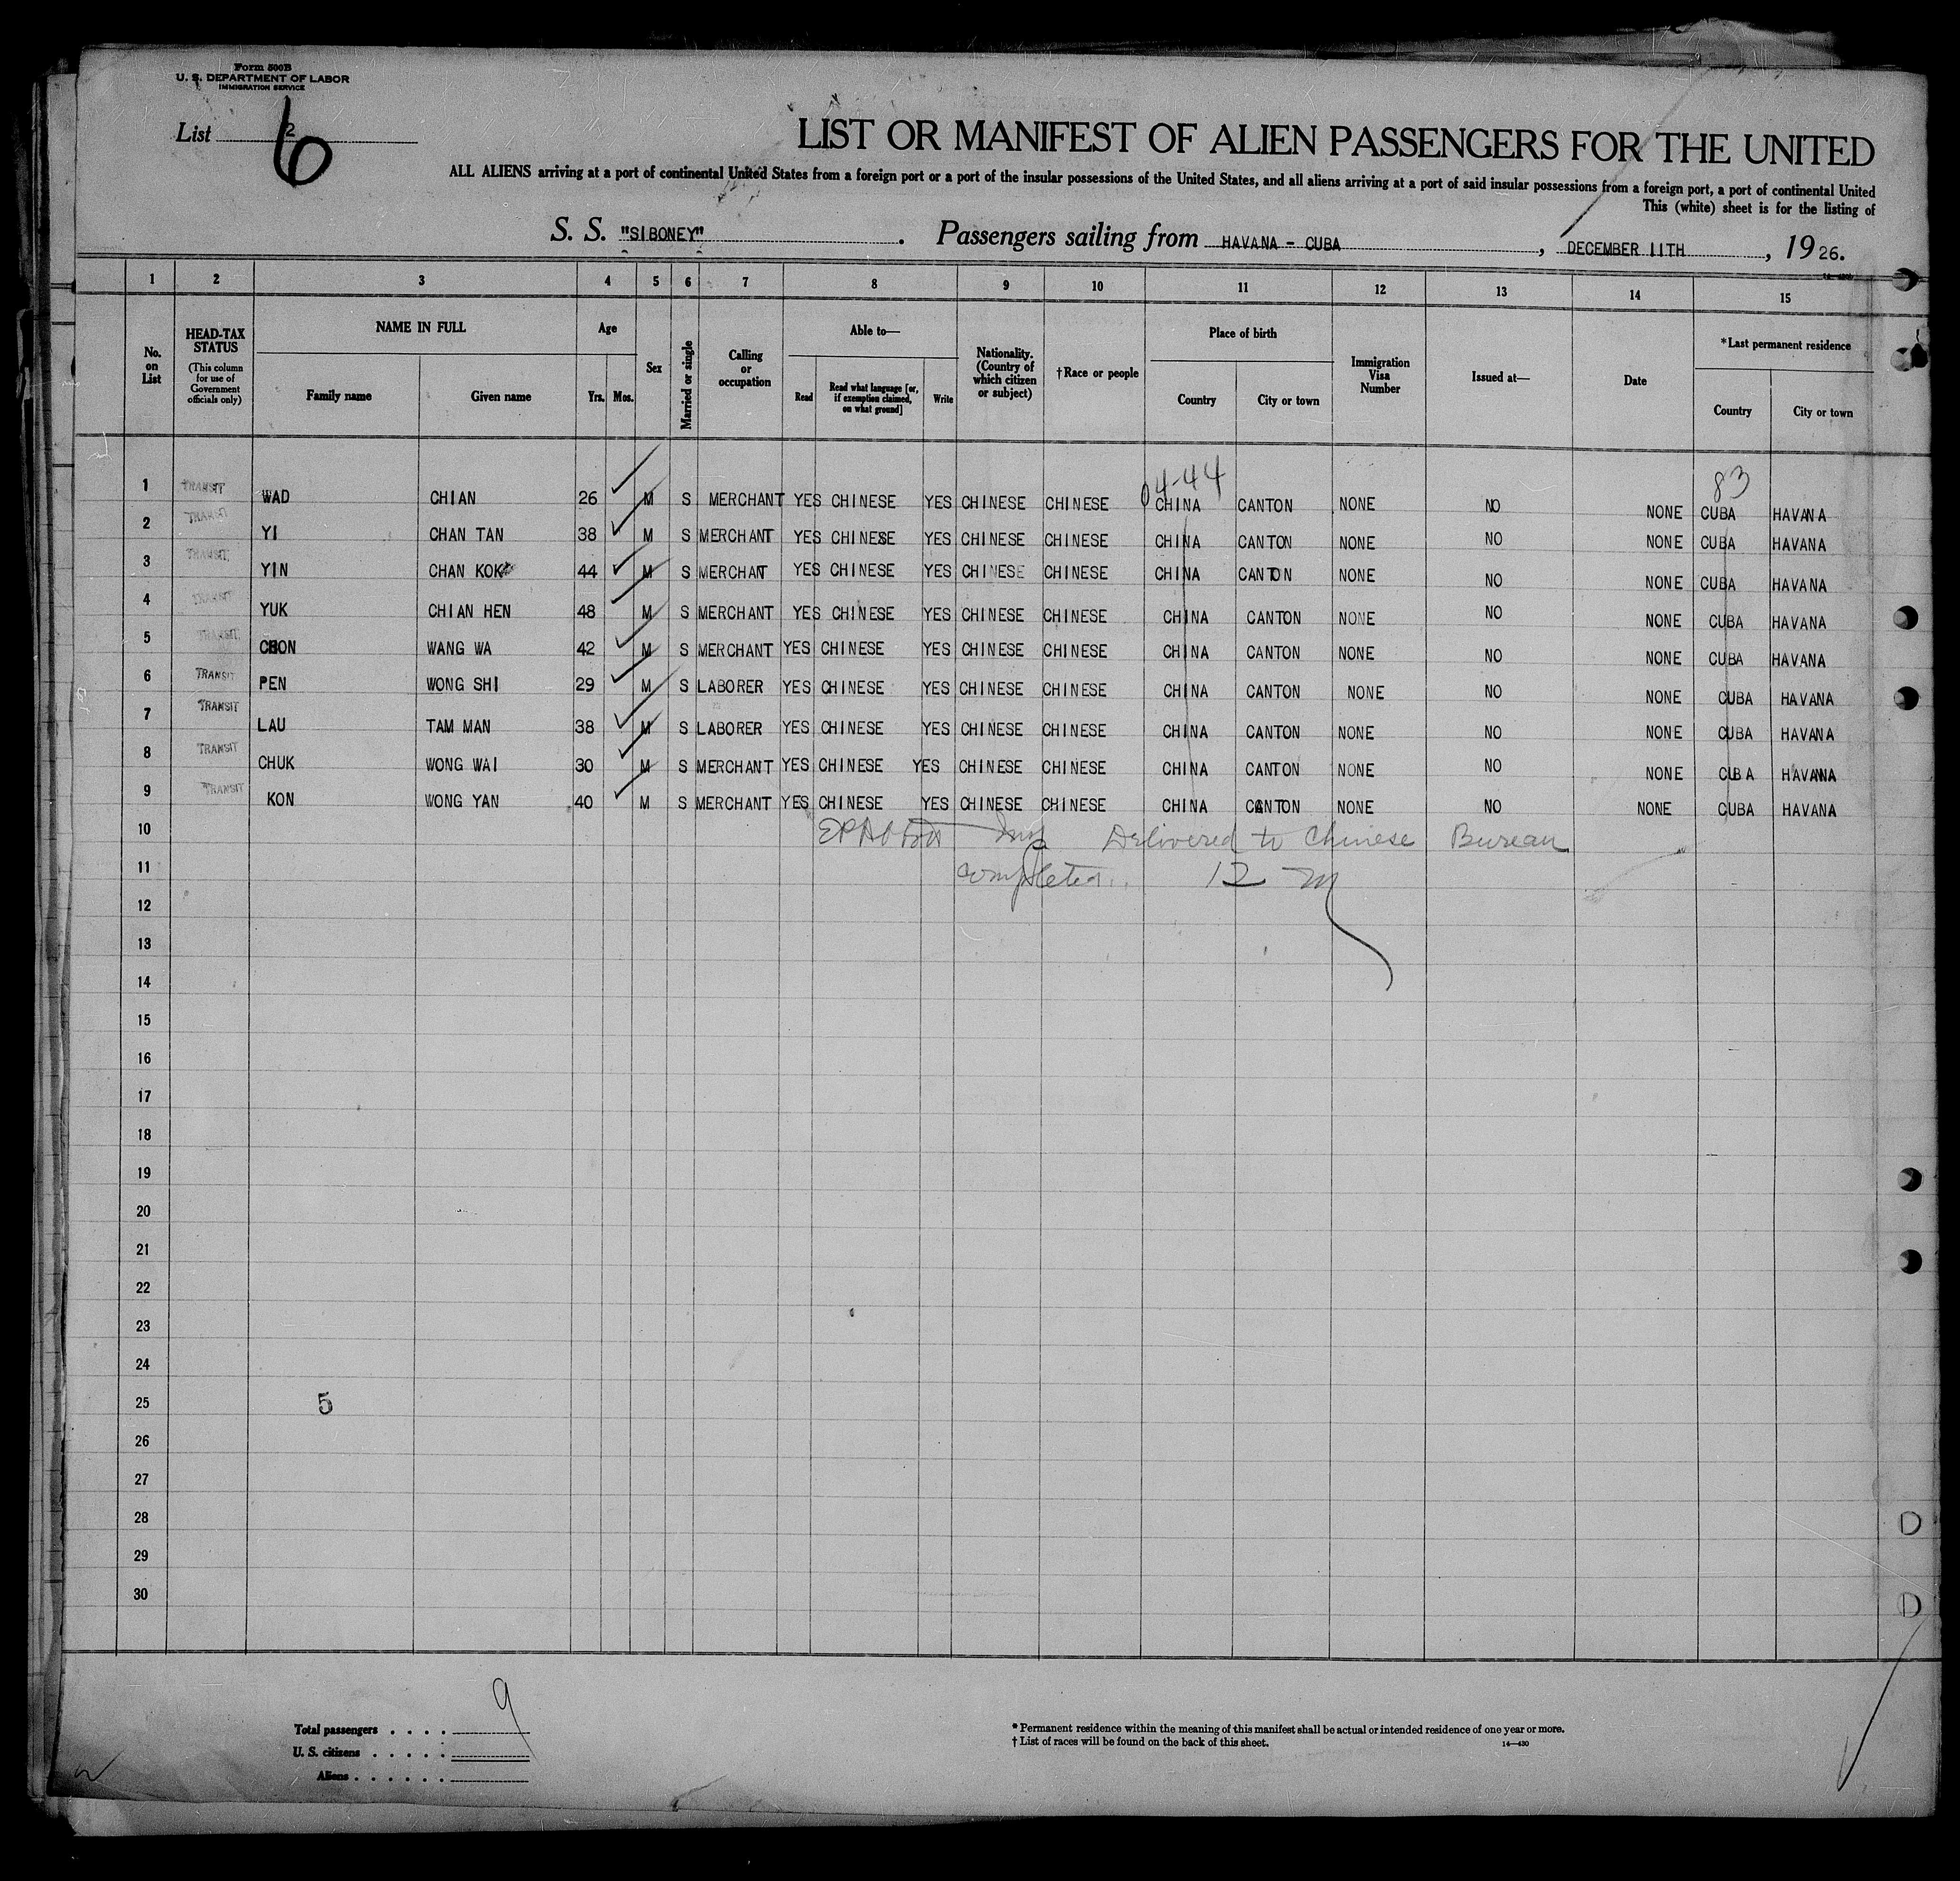 Form 500B
U. S. DEPARTMENT OF LABOR
IMMIGRATION SERVICE
List 2
6
LIST OR MANIFEST OF ALIEN PASSENGERS FOR THE UNITED
ALL ALIENS arriving at a port of continental United States from a foreign port or a port of the insular possessions of the United States, and all aliens arriving at a port of said insular possessions from a foreign port, a port of continental United
This (white) sheet is for the listing of
S. S. "SIBONEY". Passengers sailing from HAVANA - CUBA, DECEMBER 11TH, 1926.
1 2 3 4 5 6 7 8 9 10 11 12 13 14 15
No. on List HEAD-TAX STATUS (This column for use of Government officials only) NAME IN FULL Family name Given name Age Yrs. Mos. Sex Married or single Calling or occupation Able to— Read Read what language [or, if exemption claimed, on what ground] Write Nationality. (Country of which citizen or subject) †Race or people Place of birth Country City or town Immigration Visa Number Issued at— Date *Last permanent residence Country City or town
04-44 83
1 TRANSIT WAD CHIAN 26 M S MERCHANT YES CHINESE YES CHINESE CHINESE CHINA CANTON NONE NO NONE CUBA HAVANA
2 TRANSIT YI CHAN TAN 38 M S MERCHANT YES CHINESE YES CHINESE CHINESE CHINA CANTON NONE NO NONE CUBA HAVANA
3 TRANSIT YIN CHAN KOK 44 M S MERCHANT YES CHINESE YES CHINESE CHINESE CHINA CANTON NONE NO NONE CUBA HAVANA
4 TRANSIT YUK CHIAN HEN 48 M S MERCHANT YES CHINESE YES CHINESE CHINESE CHINA CANTON NONE NO NONE CUBA HAVANA
5 TRANSIT WANG WA 42 M S MERCHANT YES CHINESE YES CHINESE CHINESE CHINA CANTON NONE NO NONE CUBA HAVANA
6 TRANSIT PEN WONG SHI 29 M S LABORER YES CHINESE YES CHINESE CHINESE CHINA CANTON NONE NO NONE CUBA HAVANA
7 TRANSIT LAU TAM MAN 38 M S LABORER YES CHINESE YES CHINESE CHINESE CHINA CANTON NONE NO NONE CUBA HAVANA
8 TRANSIT CHUK WONG WAI 30 M S MERCHANT YES CHINESE YES CHINESE CHINESE CHINA CANTON NONE NO NONE CUBA HAVANA
9 TRANSIT KON WONG YAN 40 M S MERCHANT YES CHINESE YES CHINESE CHINESE CHINA CANTON NONE NO NONE CUBA HAVANA
10 Delivered to Chinese Bureau
11 completed 12 m
12
13
14
15
16
17
18
19
20
21
22
23
24
25 5
26
27
28
29
30
Total passengers . . . . 9
U. S. citizens . . . . .
Aliens . . . . . .
* Permanent residence within the meaning of this manifest shall be actual or intended residence of one year or more.
† List of races will be found on the back of this sheet. 14—430